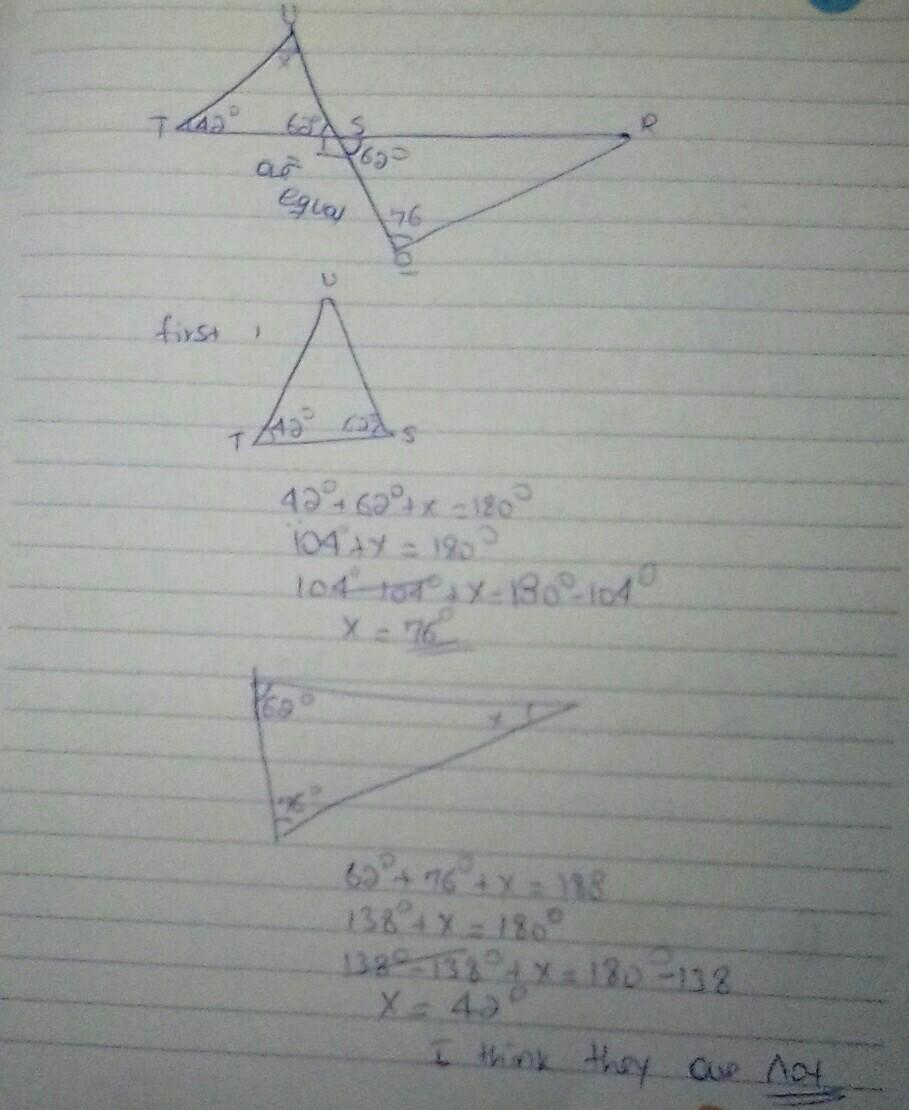 U
x
T 42° 62° S R
62°
are
equal
76
Q
U
first,
T 42° 62° S
42°+62°+x=180°
104°+x=180°
104°-104°+x=180°-104°
x=76°
62° x
76°
62°+76°+x=188
138°+x=180°
138°-138°+x=180°-138
x=42°
I think they are Not